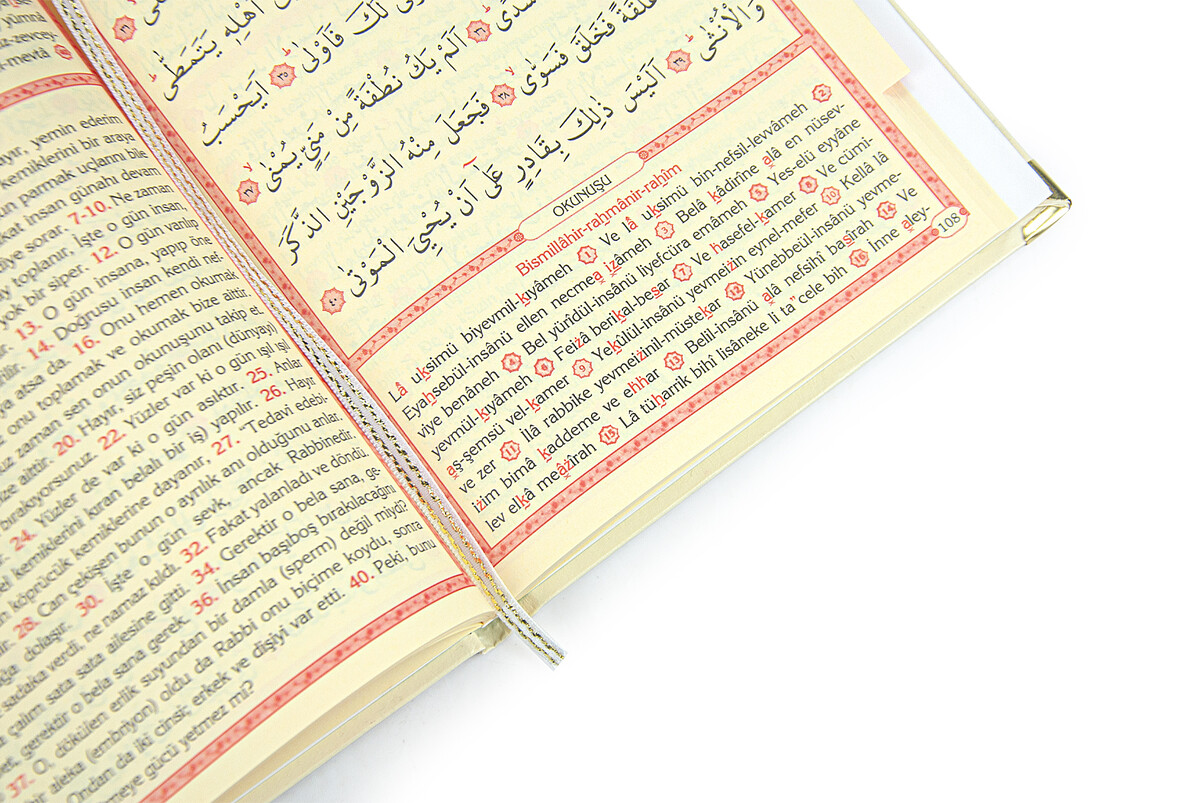 yümnâ
z-zevcey-
k-mevtâ
ayır, yemin ederim
kemiklerini bir araya
un parmak uçlarını bile
kat insan günahı devam
diye sorar. 7-10. Ne zaman
y toplanır, İşte o gün insan,
yok bir siper. 12. O gün varılıp
r. 13. O gün insana, yapıp öne
eltir. 14. Doğrusu insan kendi nef-
ya atsa da. 16. Onu hemen okumak
z onu toplamak ve okumak bize aittir.
uz zaman sen onun okunuşunu takip et.
ize aittir. 20. Hayır, siz peşin olanı (dünyayı)
bırakıyorsunuz. 22. Yüzler var ki o gün ışıl ışıl
r. 24. Yüzler de var ki o gün asıktır. 25. Anlar
el kemiklerini kıran belalı bir iş) yapılır. 26. Hayır
n köprücük kemiklerine dayanır, 27. "Tedavi edebi-
ir. 28. Can çekişen bunun o ayrılık anı olduğunu anlar.
ğa dolaşır. 30. İşte o gün sevk, ancak Rabbinedir.
sadaka verdi, ne namaz kıldı. 32. Fakat yalanladı ve döndü.
a çalım sata sata ailesine gitti. 34. Gerektir o bela sana, ge-
et, gerektir o bela sana gerek. 36. İnsan başıboş bırakılacağını
37. O, dökülen erlik suyundan bir damla (sperm) değil miydi?
bir aleka (embriyon) oldu da Rabbi onu biçime koydu, sonra
Ondan da iki cinsi; erkek ve dişiyi var etti. 40. Peki, bunu
meye gücü yetmez mi?
اَهْلِهٖ يَتَمَطّٰىؕ ﴿٣٣﴾
لَكَ فَاَوْلٰىؕ ﴿٣٥﴾ اَيَحْسَبُ
سُدًىؕ ﴿٣٦﴾ اَلَمْ يَكُ نُطْفَةً مِنْ مَنِيٍّ يُمْنٰىۙ ﴿٣٧﴾
عَلَقَةً فَخَلَقَ فَسَوّٰىۙ ﴿٣٨﴾ فَجَعَلَ مِنْهُ الزَّوْجَيْنِ الذَّكَرَ
وَالْاُنْثٰىؕ ﴿٣٩﴾ اَلَيْسَ ذٰلِكَ بِقَادِرٍ عَلٰٓى اَنْ يُحْيِيَ الْمَوْتٰى ﴿٤٠﴾
OKUNUŞU
Bismillâhir-rahmânir-rahîm
Lâ uksimü biyevmil-kıyâmeh 1 Ve lâ uksimü bin-nefsil-levvâmeh 2
Eyahsebül-insânü ellen necmea izâmeh 3 Belâ kâdirîne alâ en nüsev-
viye benâneh 4 Bel yürîdül-insânü liyefcüra emâmeh 5 Yes-elü eyyâne
yevmül-kıyâmeh 6 Feizâ berikal-besar 7 Ve hasefel-kamer 8 Ve cümi-
aş-şemsü vel-kamer 9 Yekûlül-insânü yevmeizin eynel-mefer 10 Kellâ lâ
ve zer 11 İlâ rabbike yevmeizinil-müstekar 12 Yünebbeül-insânü yevme-
izim bimâ kaddeme ve ehhar 13 Belil-insânü alâ nefsihî basîrah 14 Ve
lev elkâ meâzîrah 15 Lâ tüharrik bihî lisâneke li ta" cele bih 16 İnne aley-
108